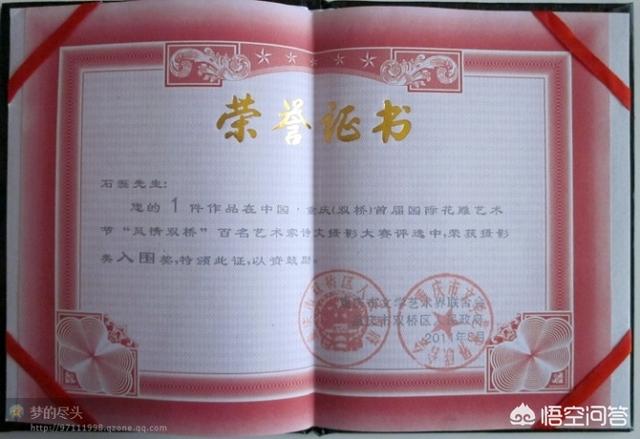 荣誉证书
石磊先生:
您的1件作品在中国·重庆(双桥)首届国际花雕艺术
节“风情双桥”百名艺术家诗文摄影大赛评选中,荣获摄影
类入围奖,特颁此证,以资鼓励。
重庆市文学艺术界联合会
重庆市双桥区人民政府
2011年8月
梦的尽头
http://97111998.qzone.qq.com
悟空问答